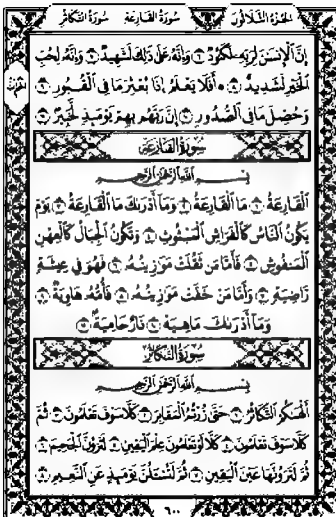 الجزء الثلاثون سورة القارعة سورة التكاثر
إِنَّ الْإِنسَٰنَ لِرَبِّهِۦ لَكَنُودٌ ٦ وَإِنَّهُۥ عَلَىٰ ذَٰلِكَ لَشَهِيدٌ ٧ وَإِنَّهُۥ لِحُبِّ
الْخَيْرِ لَشَدِيدٌ ٨ ۞ أَفَلَا يَعْلَمُ إِذَا بُعْثِرَ مَا فِي الْقُبُورِ ٩
وَحُصِّلَ مَا فِي الصُّدُورِ ١٠ إِنَّ رَبَّهُم بِهِمْ يَوْمَئِذٍ لَّخَبِيرٌ ١١
سورة القارعة
بِسْمِ اللَّهِ الرَّحْمَٰنِ الرَّحِيمِ
الْقَارِعَةُ ١ مَا الْقَارِعَةُ ٢ وَمَا أَدْرَىٰكَ مَا الْقَارِعَةُ ٣ يَوْمَ
يَكُونُ النَّاسُ كَالْفَرَاشِ الْمَبْثُوثِ ٤ وَتَكُونُ الْجِبَالُ كَالْعِهْنِ
الْمَنفُوشِ ٥ فَأَمَّا مَن ثَقُلَتْ مَوَٰزِينُهُۥ ٦ فَهُوَ فِي عِيشَةٍ
رَّاضِيَةٍ ٧ وَأَمَّا مَنْ خَفَّتْ مَوَٰزِينُهُۥ ٨ فَأُمُّهُۥ هَاوِيَةٌ ٩
وَمَا أَدْرَىٰكَ مَا هِيَهْ ١٠ نَارٌ حَامِيَةٌ ١١
سورة التكاثر
بِسْمِ اللَّهِ الرَّحْمَٰنِ الرَّحِيمِ
أَلْهَىٰكُمُ التَّكَاثُرُ ١ حَتَّىٰ زُرْتُمُ الْمَقَابِرَ ٢ كَلَّا سَوْفَ تَعْلَمُونَ ٣ ثُمَّ
كَلَّا سَوْفَ تَعْلَمُونَ ٤ كَلَّا لَوْ تَعْلَمُونَ عِلْمَ الْيَقِينِ ٥ لَتَرَوُنَّ الْجَحِيمَ ٦
ثُمَّ لَتَرَوُنَّهَا عَيْنَ الْيَقِينِ ٧ ثُمَّ لَتُسْـَٔلُنَّ يَوْمَئِذٍ عَنِ النَّعِيمِ ٨
٦٠٠